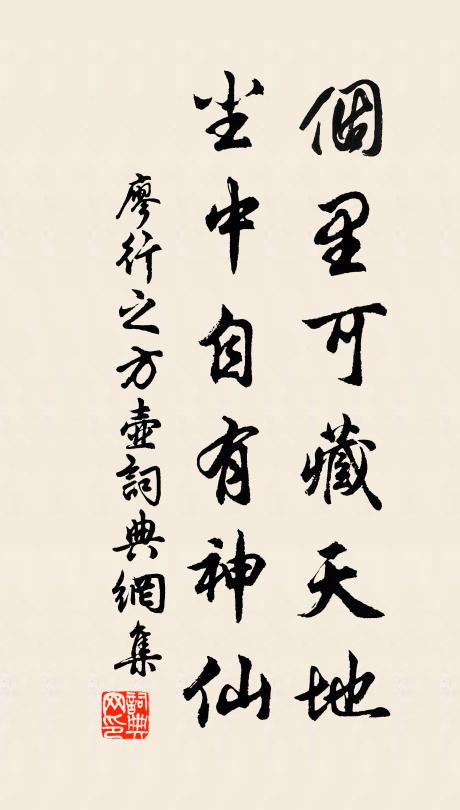 個里可藏天地
尘中自有神仙
廖行之方壺詞典網集
詞典网印